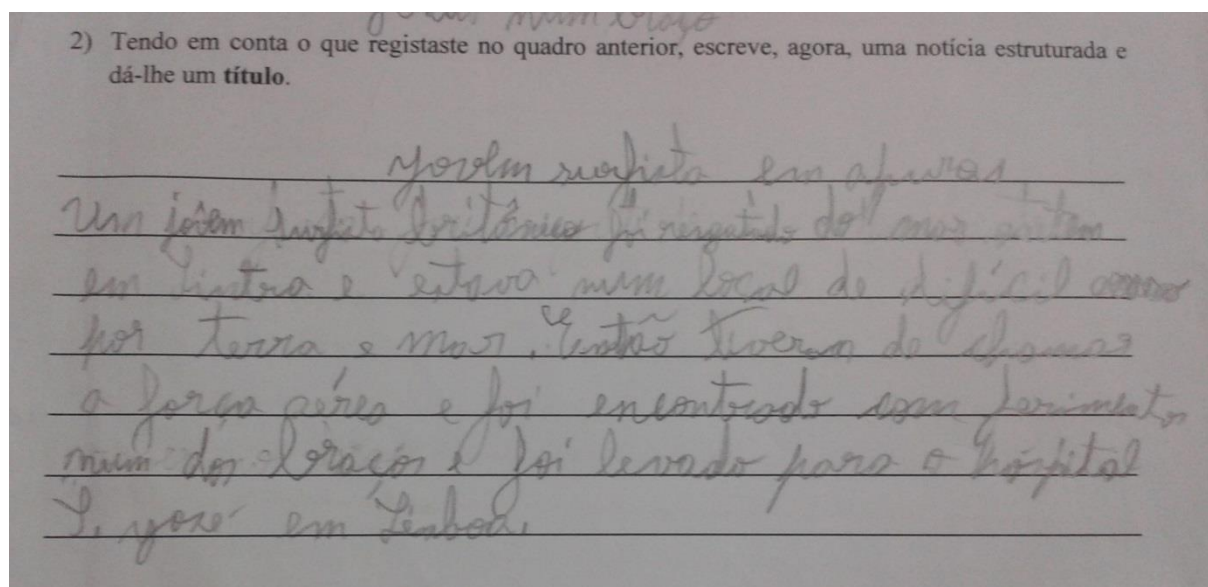 num braço
2) Tendo em conta o que registaste no quadro anterior, escreve, agora, uma notícia estruturada e
dá-lhe um título.
Jovem surfista em apuros
Um jovem surfista britânico foi resgatado do mar ontem
em Sintra e estava num local de difícil acesso
por terra e mar. Então tiveram de chamar
a força aérea e foi encontrado com ferimentos
num dos braços e foi levado para o hospital
S. José em Lisboa.